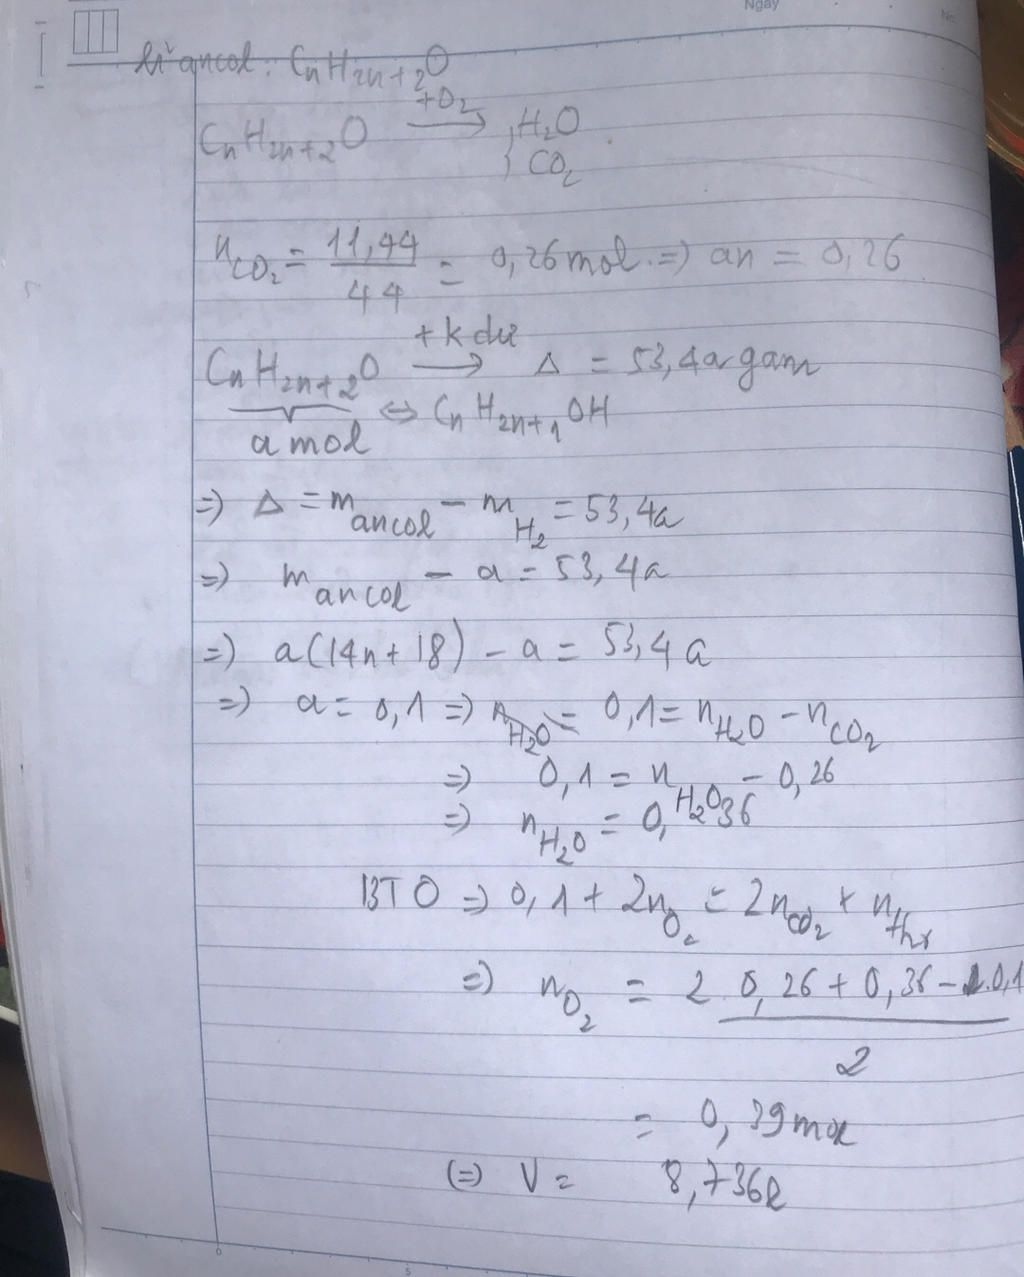 Ngày
No.
li ancol: CnH2n+2O
CnH2n+2O +O2 → H2O
CO2
nCO2 = 11,44/44 = 0,26 mol. => an = 0,26
CnH2n+2O +k dư → Δ = 53,4a gam
a mol <=> CnH2n+1OH
=> Δ = mancol - mH2 = 53,4a
=> mancol - a = 53,4a
=> a(14n+18) - a = 53,4a
=> a = 0,1 => nH2O = 0,1 = nH2O - nCO2
=> 0,1 = nH2O - 0,26
=> nH2O = 0,36
BTO => 0,1 + 2nO2 = 2nCO2 + n
=> nO2 = 2.0,26 + 0,36 - 0,1
2
= 0,39 mol
(=) V = 8,736l
0
5